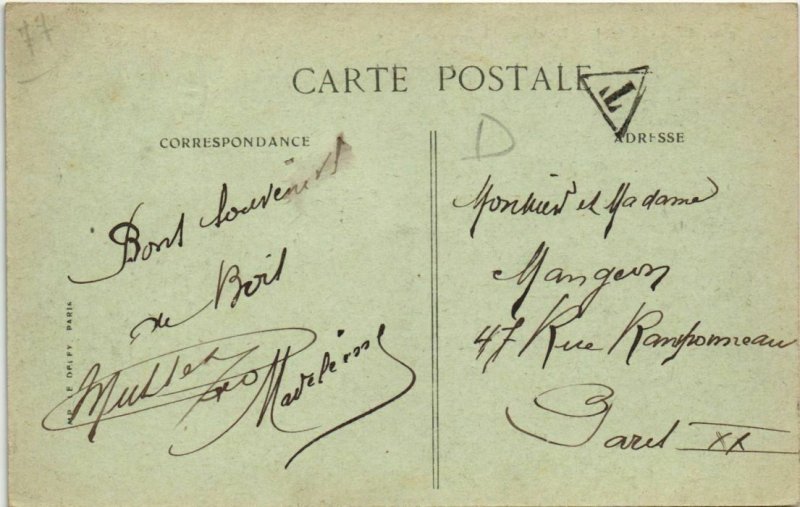 77
CARTE POSTALE
T
D
CORRESPONDANCE
ADRESSE
Bons souvenirs
de Bois
Madeleine
IMP. LE DELEY, PARIS
Monsieur et Madame
Mangeon
47 Rue Ramponneau
Paris XX